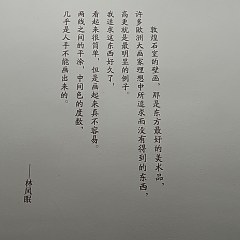 敦煌石室的壁画，那是东方最好的美术品，
许多欧洲大画家理想中所追求而没有得到的东西，
高更就是最明显的例子。
我追求这东西好久了，
看起来很简单，但是画起来真不容易。
两线之间的平涂，中间色的度数，
几乎是人手不能画出来的。
——林风眠